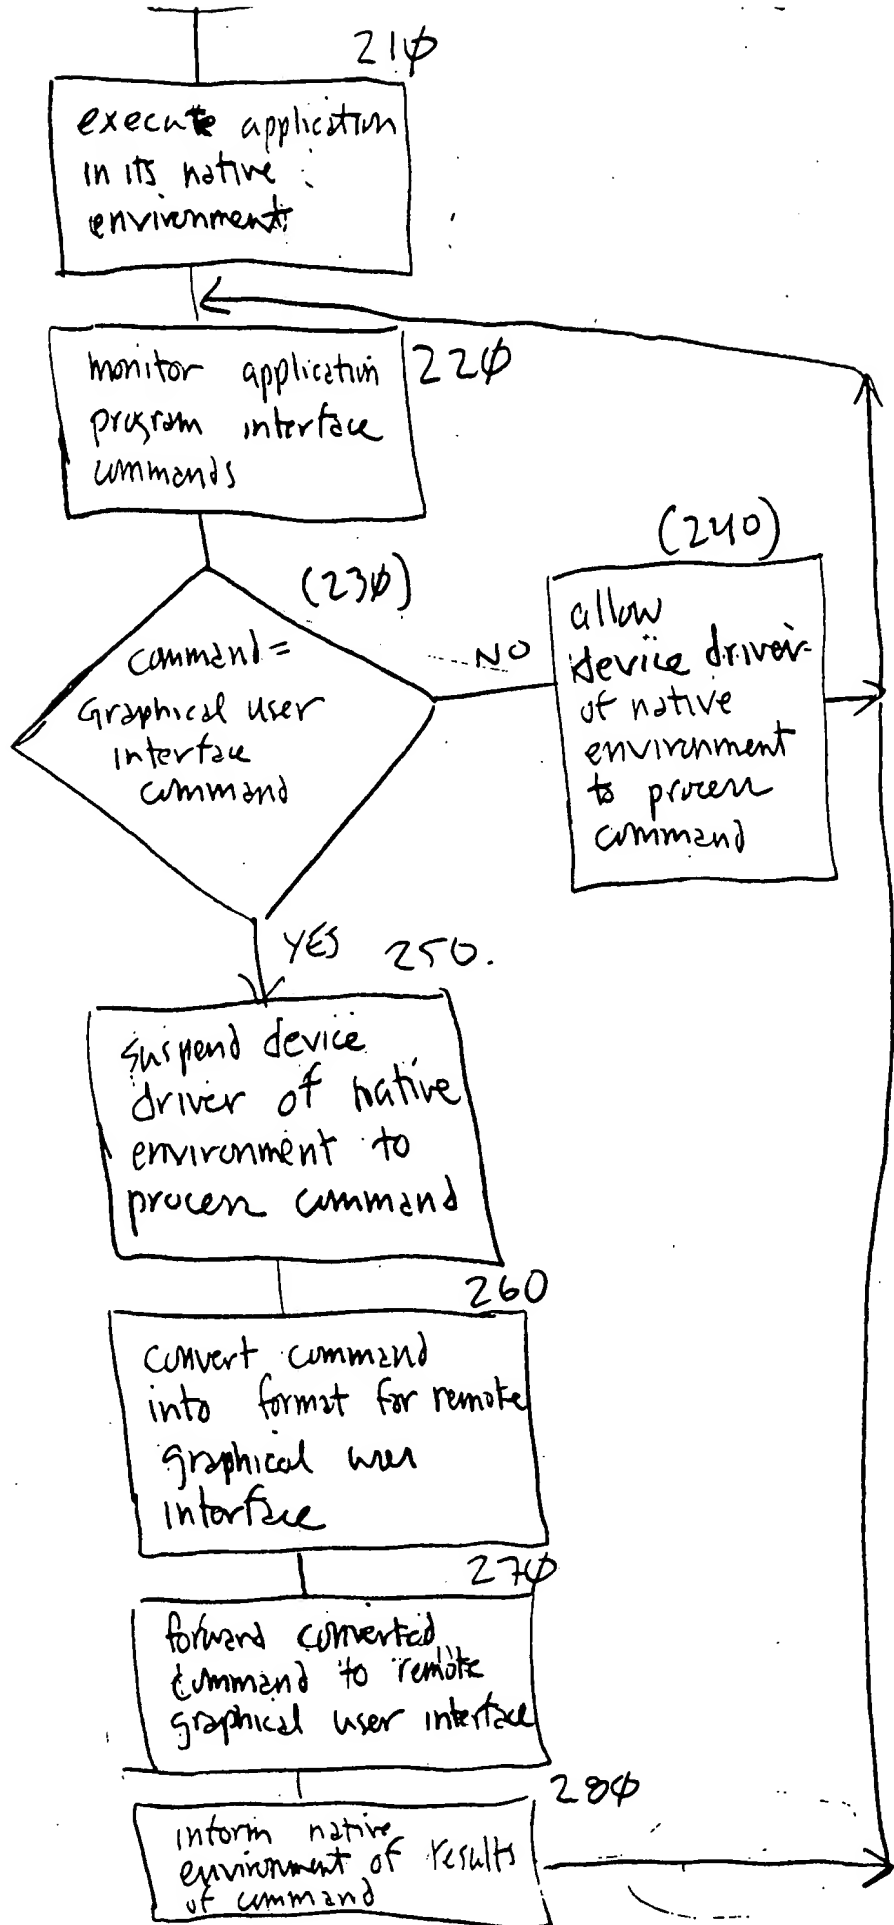 210
execute application
in its native
environment
monitor application
program interface
commands
220
(230)
command =
Graphical user
interface
command
NO
(240)
allow
device driver
of native
environment
to process
command
YES
250.
suspend device
driver of native
environment to
process command
260
convert command
into format for remote
graphical user
interface
270
forward converted
command to remote
graphical user interface
280
inform native
environment of results
of command